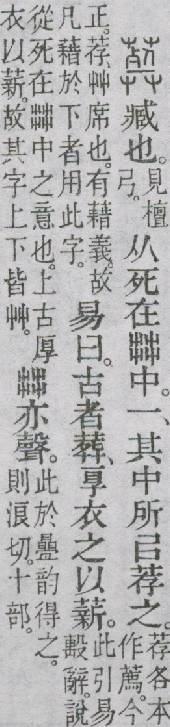 葬臧也。見檀弓。从死在茻中。一、其中所㠯荐之。荐各本作薦。今
正。荐、艸席也。有藉義。故凡藉於下者用此字。易曰。古者葬、㫗衣之以薪。此引易毄辭。說
從死在茻中之意也。上古厚衣以薪。故其字上下皆艸。茻亦聲。此於疊韵得之。則浪切。十部。